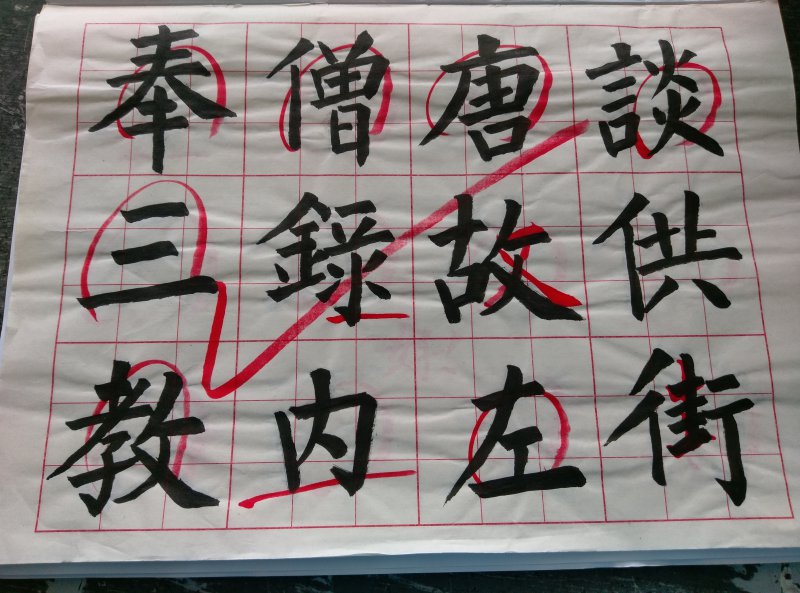 談供街
唐故左
僧錄内
奉三教